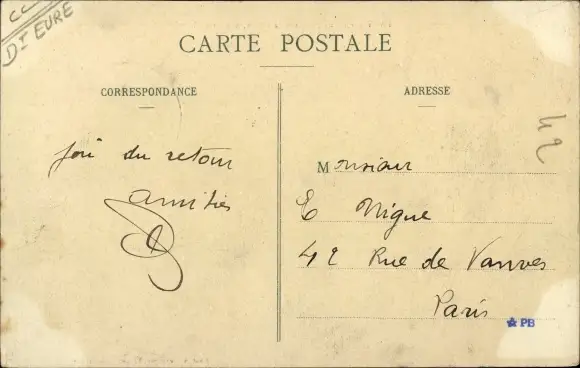 Dt EURE
CARTE POSTALE
CORRESPONDANCE
ADRESSE
du retour
amitiés
Monsieur
E Nigue
42 Rue de Vanves
Paris
PB
42